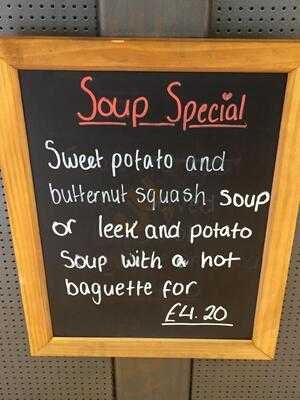 Soup Special
Sweet potato and
butternut squash soup
or leek and potato
Soup with a hot
baguette for
£4.20